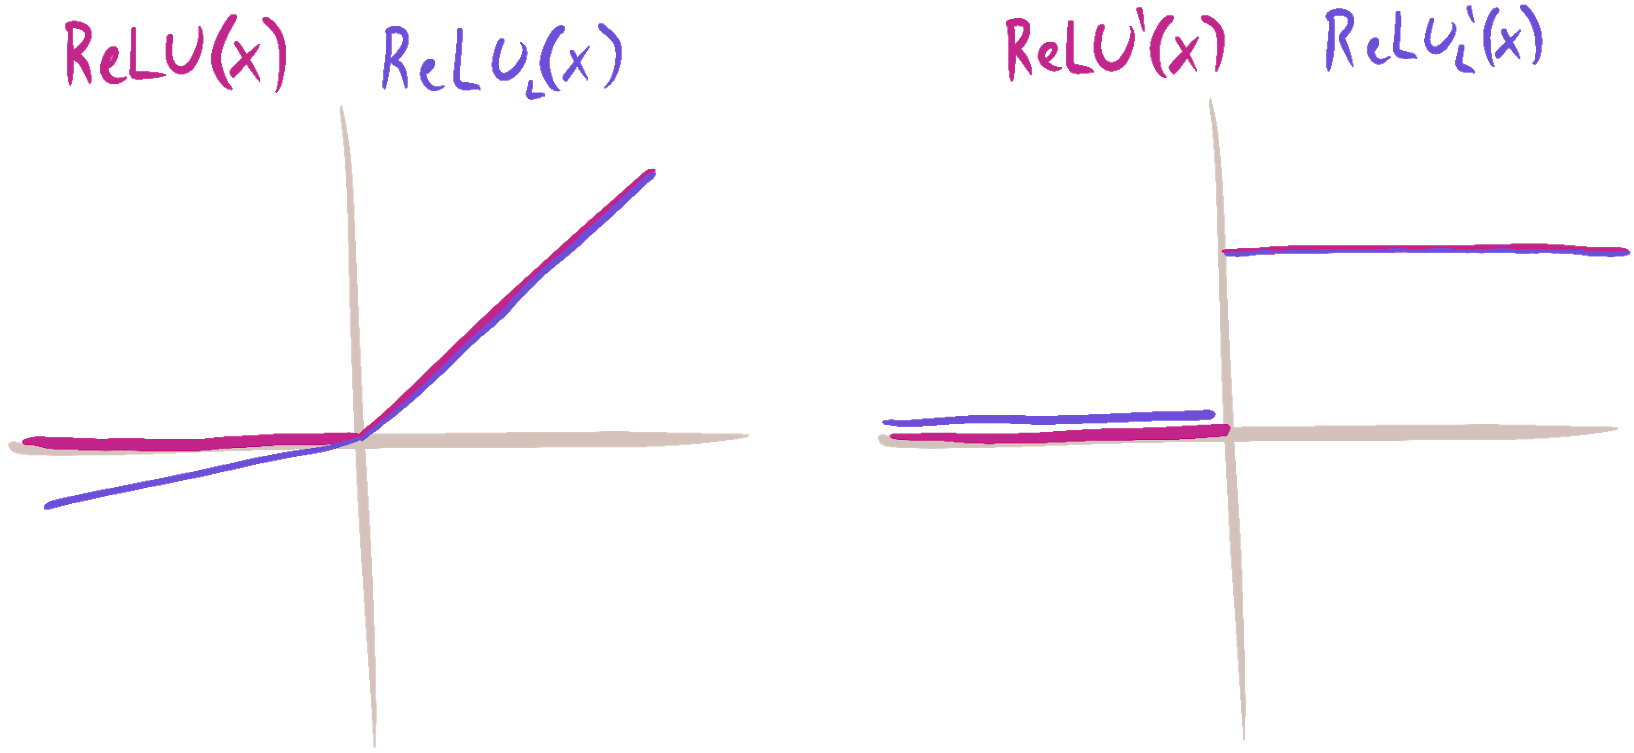 ReLU(x) ReLU_L(x) ReLU'(x) ReLU_L'(x)